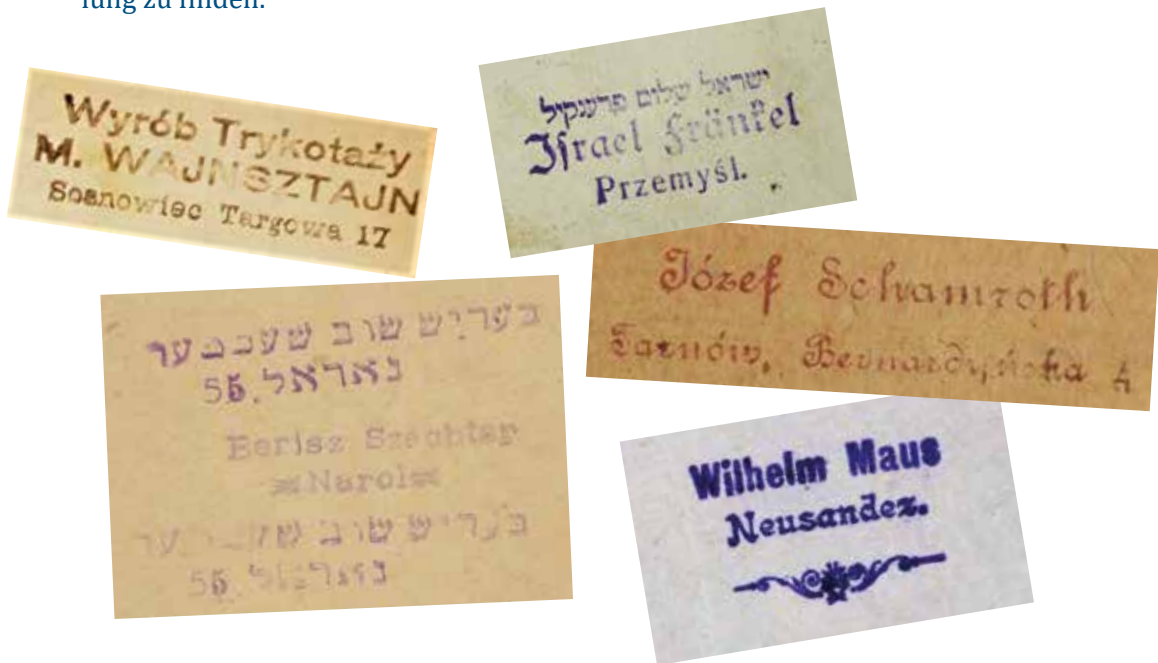 lung zu finden.
Wyrób Trykotaży
M. WAJNSZTAJN
Sosnowiec Targowa 17
ישראל שלום פרענקיל
Iſrael Fränkel
Przemyśl.
Józef Schamroth
Tarnów, Bernardyńska 4
בעריש שוב שעכטער
נאראל.55
Berisz Szechter
Narol
בעריש שוב
נאראל.55
Wilhelm Maus
Neusandez.